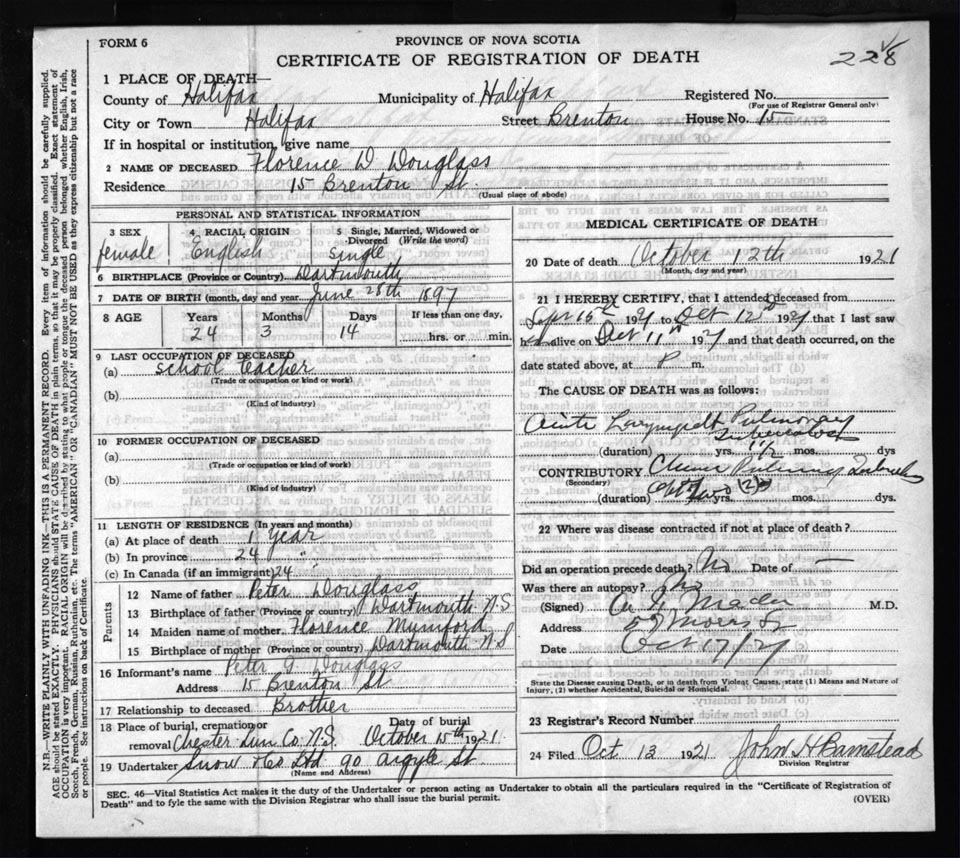 FORM 6
PROVINCE OF NOVA SCOTIA
CERTIFICATE OF REGISTRATION OF DEATH
228
1 PLACE OF DEATH—
County of Halifax Municipality of Halifax Registered No.
(For use of Registrar General only)
City or Town Halifax Street Brenton House No. 15
If in hospital or institution, give name
2 NAME OF DECEASED Florence D Douglass
Residence 15 Brenton St.
(Usual place of abode)
PERSONAL AND STATISTICAL INFORMATION
3 SEX 4 RACIAL ORIGIN 5 Single, Married, Widowed or Divorced (Write the word)
female English single
6 BIRTHPLACE (Province or Country) Dartmouth
7 DATE OF BIRTH (month, day and year June 28th 1897
8 AGE Years Months Days If less than one day,
24 3 14 hrs. or min.
9 LAST OCCUPATION OF DECEASED
(a) school teacher
(Trade or occupation or kind or work)
(b)
(Kind of industry)
10 FORMER OCCUPATION OF DECEASED
(a)
(Trade or occupation or kind or work)
(b)
(Kind of industry)
11 LENGTH OF RESIDENCE (In years and months)
(a) At place of death 1 Year
(b) In province 24 "
(c) In Canada (if an immigrant) 24 "
Parents
12 Name of father Peter Douglass
13 Birthplace of father (Province or country) Dartmouth N.S
14 Maiden name of mother Florence Mumford
15 Birthplace of mother (Province or country) Dartmouth N.S
16 Informant's name Peter G. Douglass
Address 15 Brenton St
17 Relationship to deceased Brother
18 Place of burial, cremation or removal Chester Lun Co. N.S. Date of burial October 15th 1921
19 Undertaker Snow & Co Ltd 90 Argyle St
(Name and Address)
MEDICAL CERTIFICATE OF DEATH
20 Date of death October 12th 1921
(Month, day and year)
21 I HEREBY CERTIFY, that I attended deceased from
Sept 15th 1921 to Oct 12th 1921 that I last saw
alive on Oct 11th 1921 and that death occurred, on the
date stated above, at P m.
The CAUSE OF DEATH was as follows:
Acute Pulmonary
Tuberculosis
(duration) yrs. 1 1/2 mos. dys
CONTRIBUTORY Pulmonary
(Secondary)
(duration) two (2) yrs. mos. dys.
22 Where was disease contracted if not at place of death?
Did an operation precede death? No Date of —
Was there an autopsy? No
(Signed) M.D.
Address Morris St
Date Oct 17/21
State the Disease causing Death, or in death from Violent Causes, state (1) Means and Nature of
Injury, (2) whether Accidental, Suicidal or Homicidal.
23 Registrar's Record Number
24 Filed Oct 13 1921 John H Barnstead
Division Registrar
SEC. 46—Vital Statistics Act makes it the duty of the Undertaker or person acting as Undertaker to obtain all the particulars required in the "Certificate of Registration of
Death" and to fyle the same with the Division Registrar who shall issue the burial permit. (OVER)
N.B.—WRITE PLAINLY WITH UNFADING INK—THIS IS A PERMANENT RECORD. Every item of information should be carefully supplied.
AGE should be stated EXACTLY. PHYSICIANS should STATE CAUSE OF DEATH in plain terms, so that it may be properly classified. Exact statement of
OCCUPATION is very important. RACIAL ORIGIN will be described by stating to what people or tongue the deceased person belonged whether English, Irish,
Scotch, French, German, Russian, Ruthenian, etc. The terms "AMERICAN" OR "CANADIAN" MUST NOT BE USED as they express citizenship but not a race
or people. See instructions on back of Certificate.